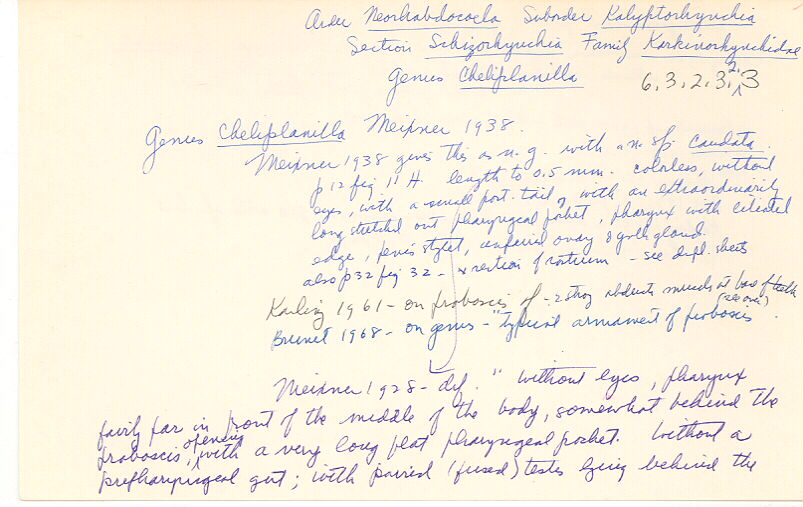 Order Neorhabdocoela Suborder Kalyptorhynchia
Section Schizorhynchia Family Karkinorhynchidae
Genus Cheliplanilla 6.3.2.3.2.3
Genus Cheliplanilla Meixner 1938.
Meixner 1938 gives this as n.g. with a n. sp. caudata.
p 12 fig 11 H. length to 0.5 mm. colorless, without
eyes, with a small post. tail, with an extraordinarily
long stretched out pharyngeal pocket, pharynx with ciliated
edge, penis stylet, unpaired ovary & yolk gland.
also p32 fig 32 - section of rostrum - see dupl. sheets
Karling 1961 - on proboscis of - 2 strong abductor muscles at base of teeth
(see over)
Brunet 1968 - on genus - "typical armament of proboscis.
Meixner 1928 - def. "without eyes, pharynx
fairly far in front of the middle of the body, somewhat behind the
proboscis, opening with a very long flat pharyngeal pocket. Without a
prepharyngeal gut; with paired (fused) testes lying behind the